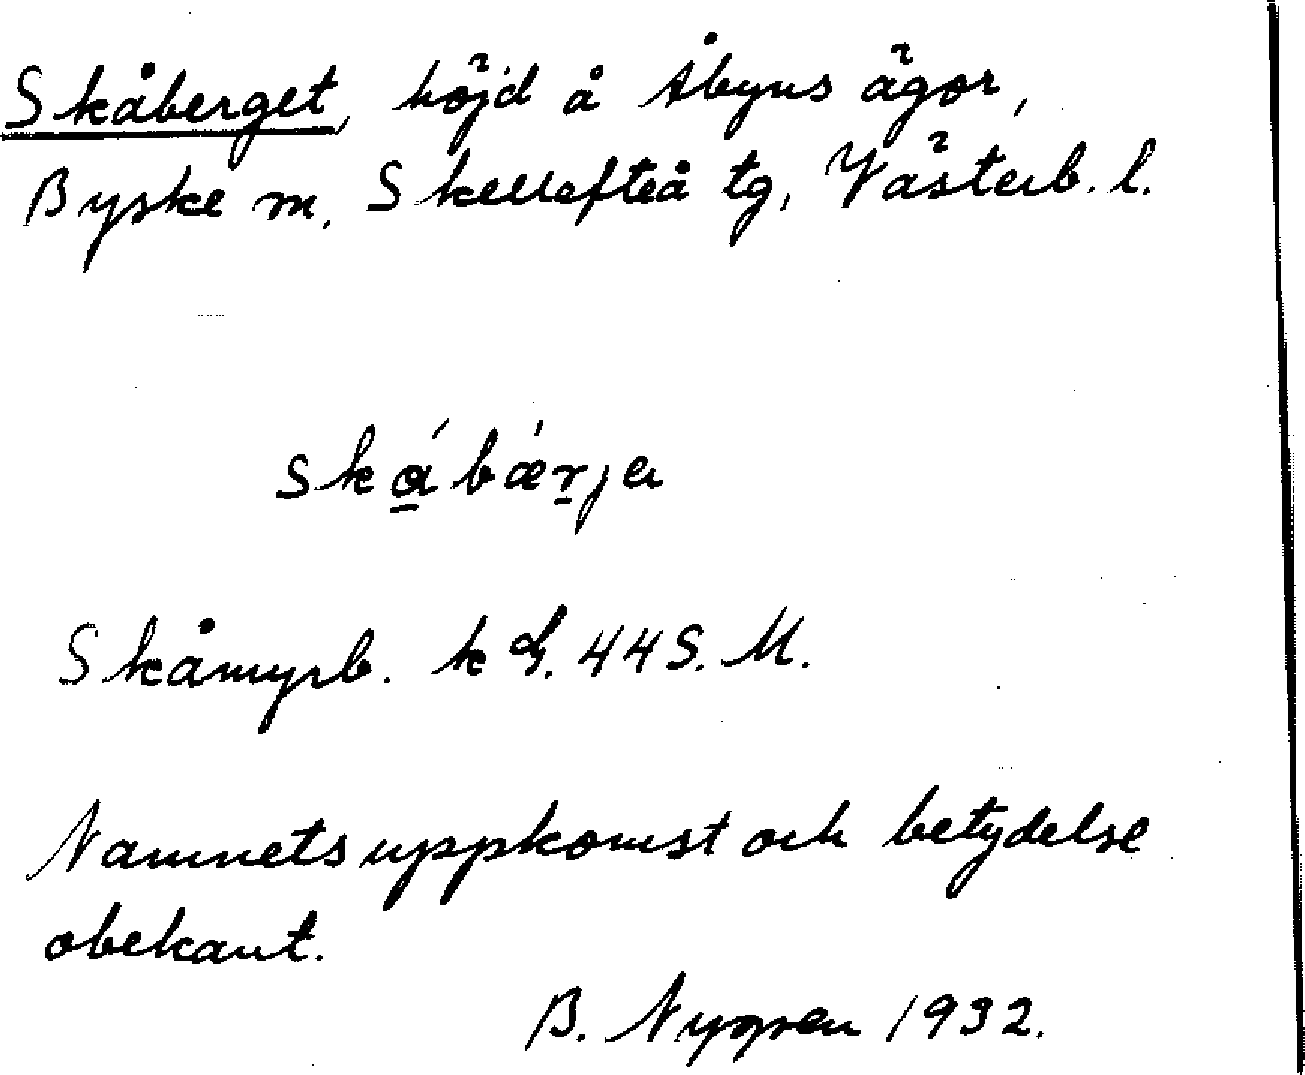 Skåberget, höjd å Åbyns ägor,
Byske m. Skellefteå tg, Västerb. l.
skábǽrja
Skåmyrb. k bl. 44 S. M.
Namnets uppkomst och betydelse
obekant.
B. Nygren 1932.